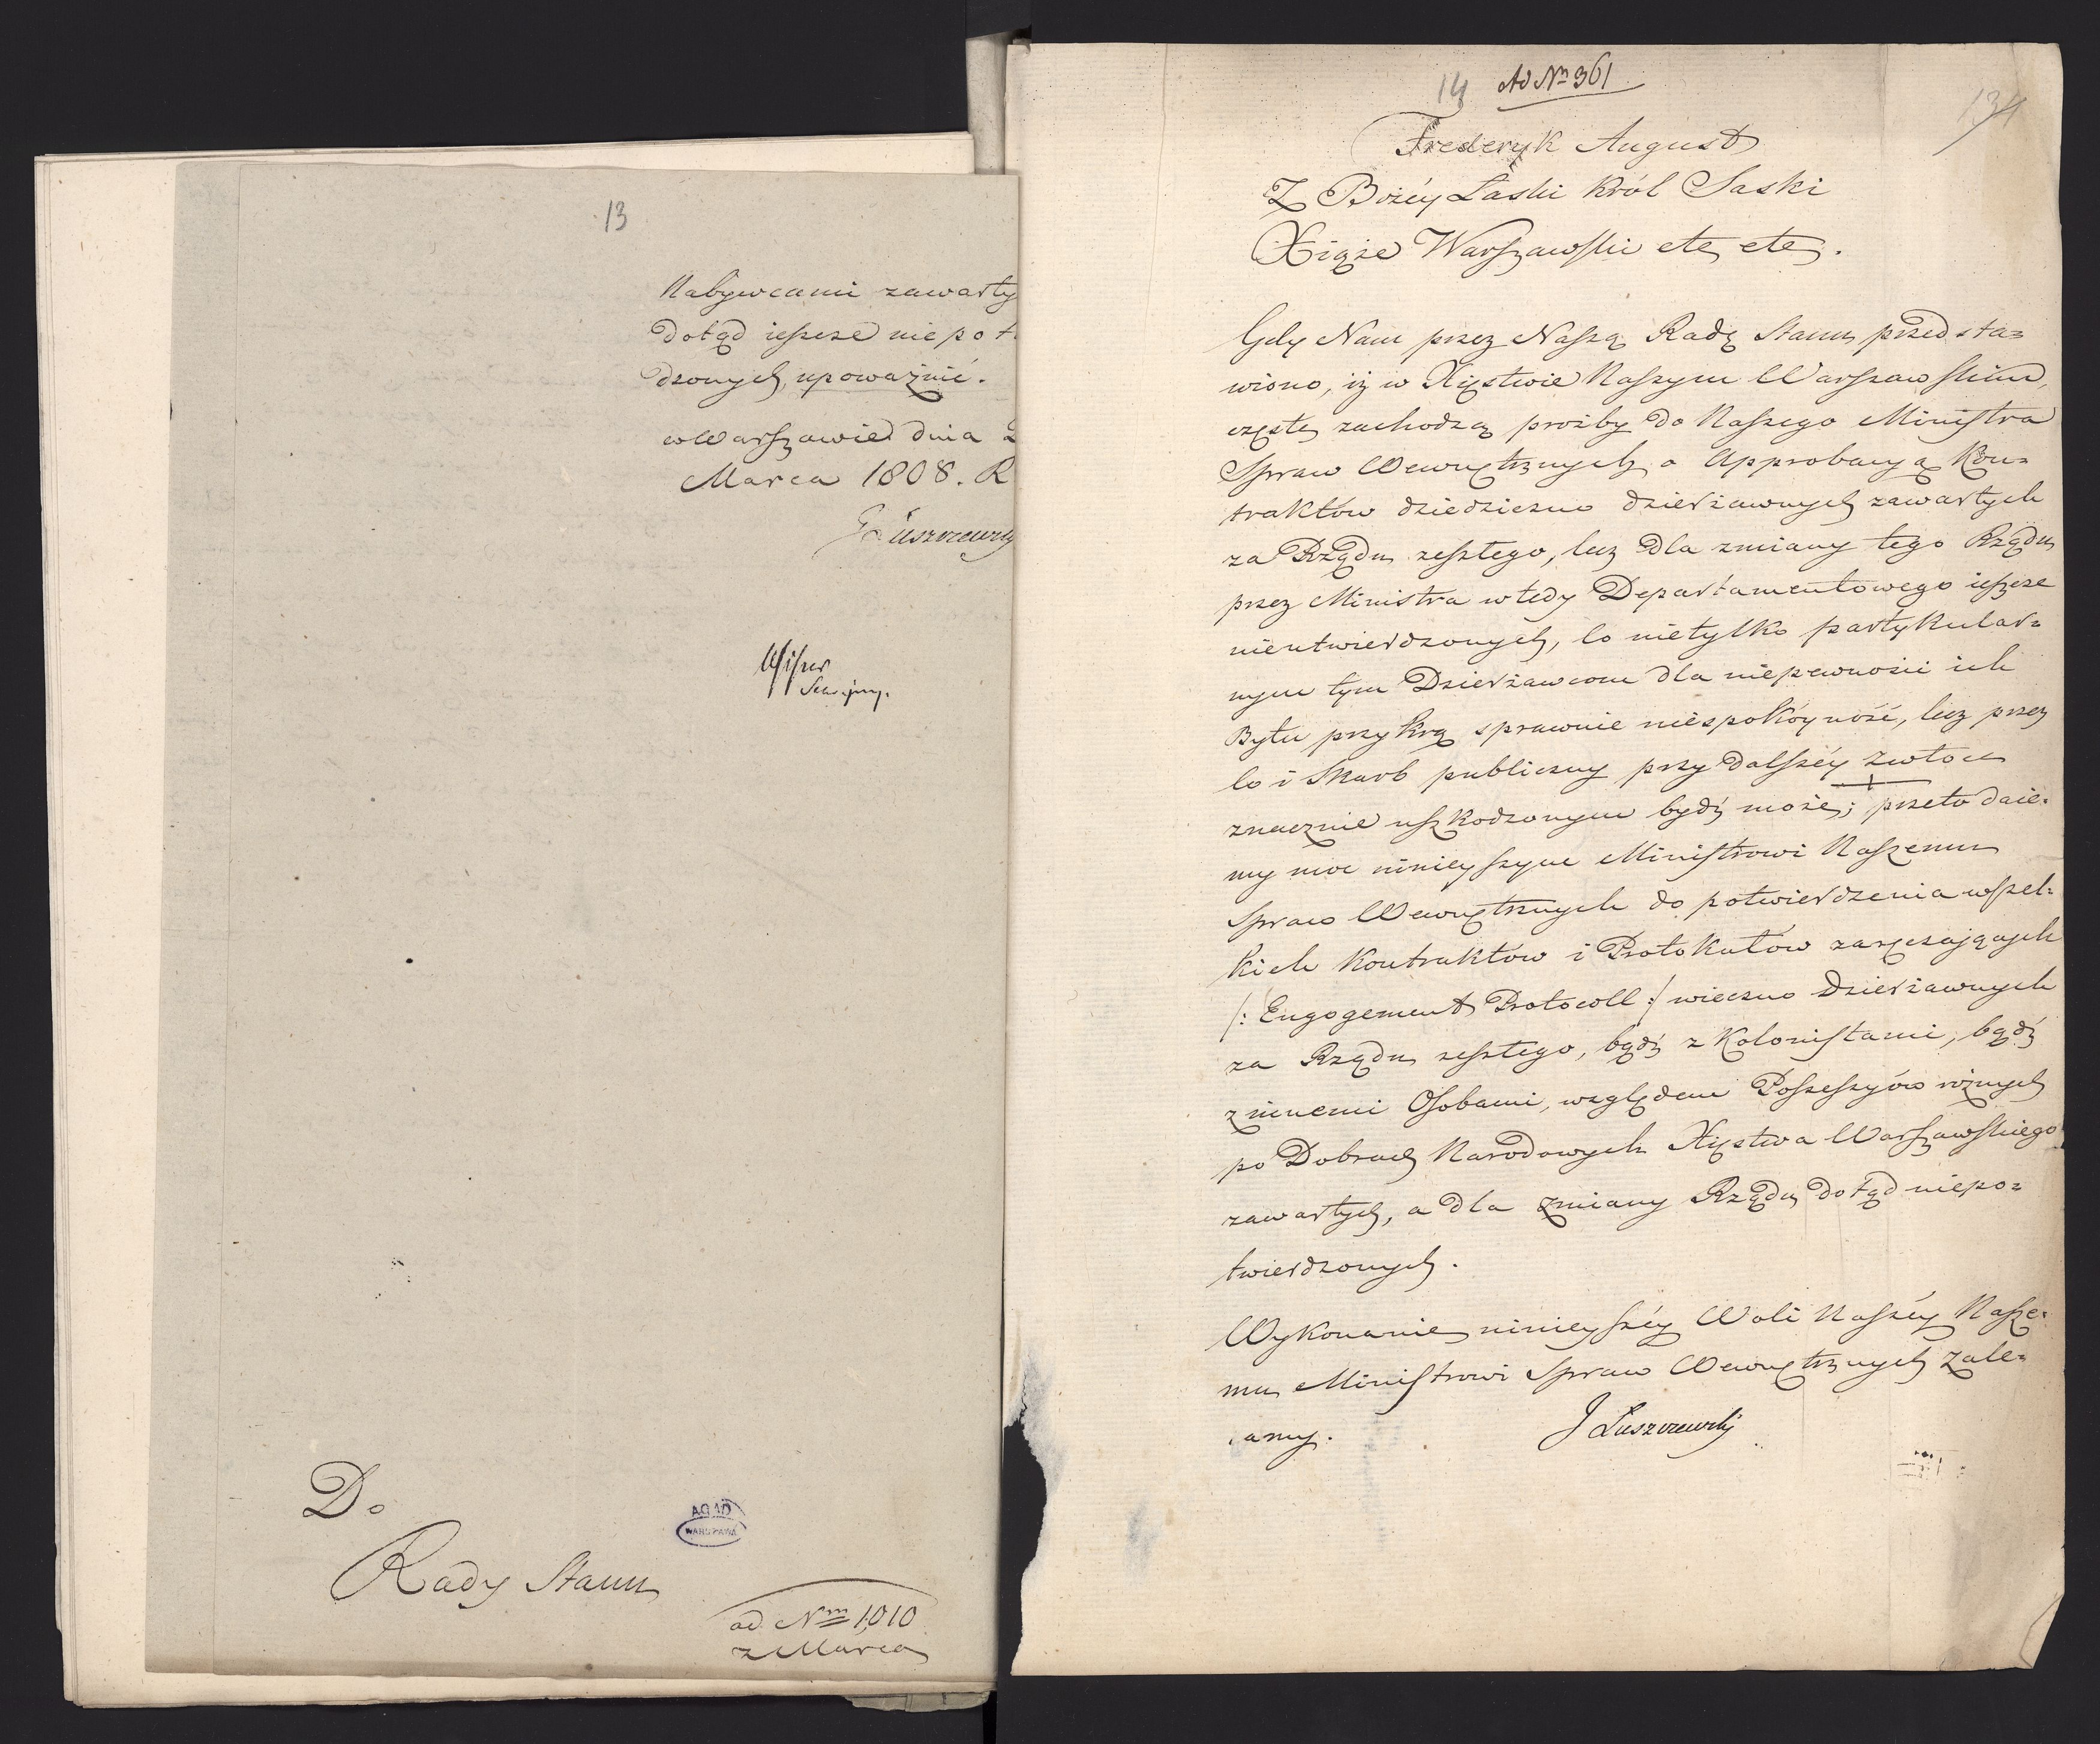 13
Nabywcami zawarty
dotąd ieszcze nie pot
dzonych, upoważnić.
w Warszawie dnia 2
Marca 1808. R
Łuszczewsky
Do
Rady Stanu
AGAD
WARSZAWA
ad Nm 1010
z Marca
14 Ad Nm 361
134
Frederyk August
Z Bożéy Łaski Król Saski
Xiąże Warszawski etc etc.
Gdy Nam przez Naszą Radę Stanu przedsta=
wiono, iż w Xięstwie Naszym Warszawskim,
częste zachodzą proźby do Naszego Ministra
Spraw Wewnętrznych o Approbacyą Kon=
traktów dziedziczno dzierżawnych zawartych
za Rządu zeszłego, lecz dla zmiany tego Rządu
przez Ministra wtedy Departamentowego ieszcze
nieutwierdzonych, co nietylko partykular=
nym tym Dzierżawcom dla niepewności ich
Bytu przykrą sprawuie niespokóyność, lecz przez
co i Skarb publiczny przy dalszéy zwłoce
znacznie uszkodzonym bydź może; przeto daie=
my moc ninieyszym Ministrowi Naszemu
Spraw Wewnętrznych do potwierdzenia wszel=
kich Kontraktów i Protokułów zaręczających
/: Engogement Protocoll :/ wieczno dzierżawnych
za Rządu zeszłego, bądź z Kolonistami, bądź
z innemi Osobami, względem Possessyów różnych
po Dobrach Narodowych Xięstwa Warszawskiego
zawartych, a dla zmiany Rządu dotąd niepo=
twierdzonych.
Wykonanie ninieyszéy Woli Naszéy Nasze=
mu Ministrowi Spraw Wewnętrznych zale=
camy.
J Łuszczewsky